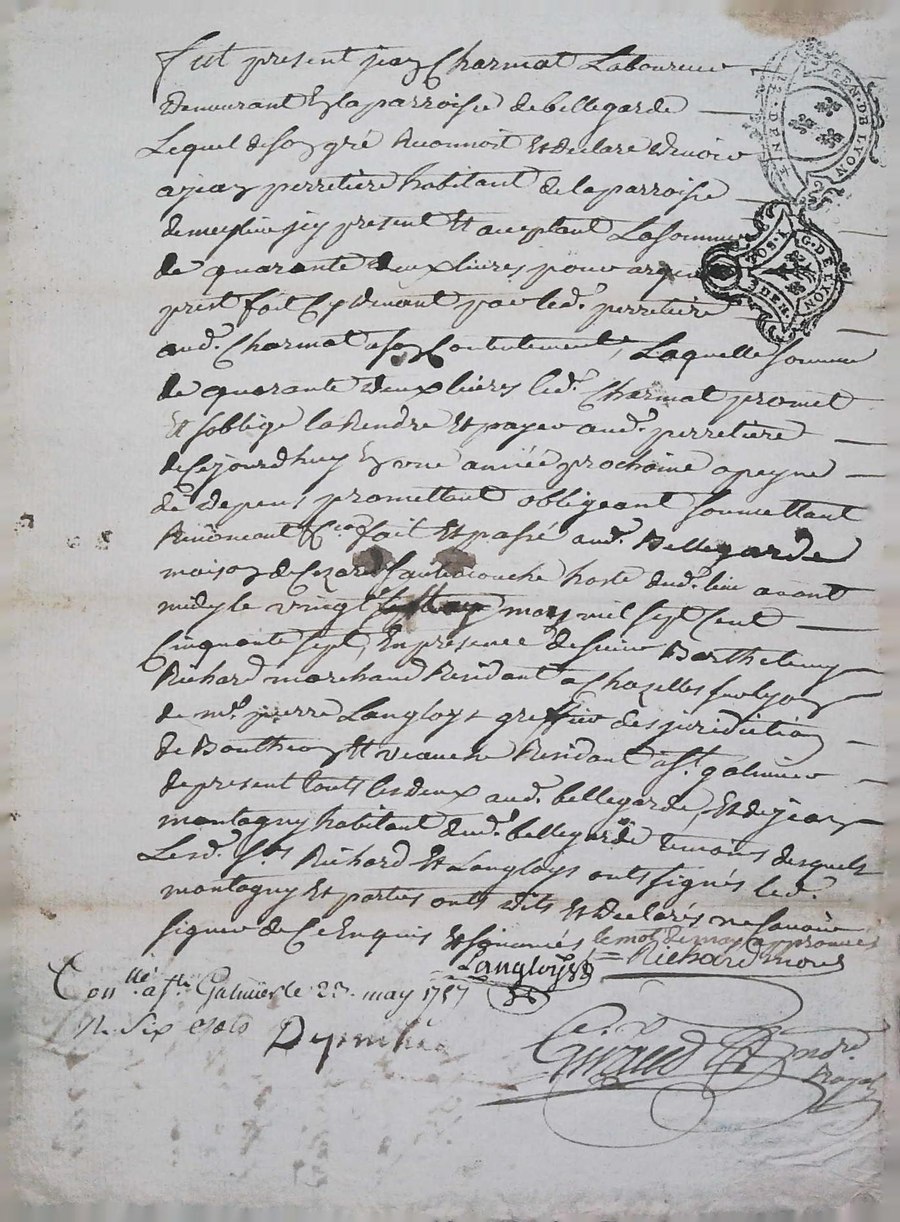 Fut present jean Charmat Laboureur
demeurant en la parroisse de bellegarde
Lequel de son gré Reconnoit et declare devoir
a jean perretiere habitant de la parroisse
de meylieu icy present et acceptant La somme
de quarante deux livres pour
prest fait Cy devant par led. perretiere
aud. Charmat a son Contentement, Laquelle somme
de quarante deux livres led. Charmat promet
Et soblige la Rendre et payer aud. perretiere
de Cejourdhuy en une année prochaine a peyne
de depens promettant obligeant soumettant
Renoncant &c. fait et passé aud. Bellegarde
maison de Cezard hoste dud. lieu avant
midy le vingt may mil sept Cent
Cinquante sept, En presence de sieur Barthelemy
Richard marchand Residant a Chazelles sur lyon
de me. pierre Langloys greffier des juridictions
de Boutheon et veauche Residant a st. galmier
de present touts les deux aud. bellegarde, et de jean
montagny habitant dud. bellegarde temoins desquels
Lesd. srs. Richard et Langloys ont signés led.
montagny et parties ont dits et declarés ne savoir
signer de Ce Enquis et sommés le mot de may approuvé
Langloys Richard
Conllé. a st. Galmier le 23. may 1757
R. Six sols
Giraud
Nore.
Royal
GEN. DE LYON
G. DE LYON